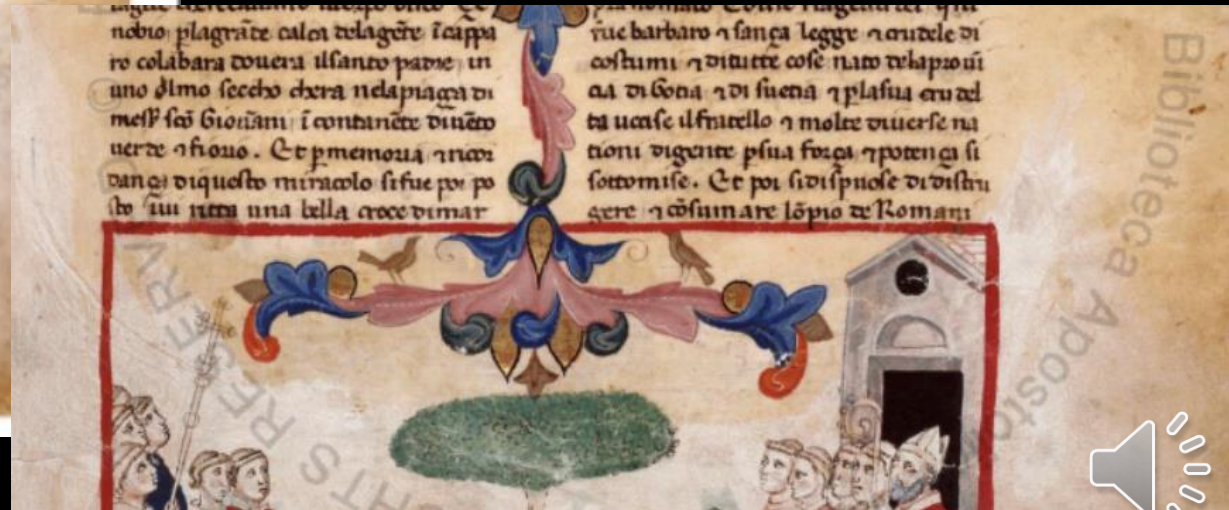 nobio plagrāde calca delagēte īcappa
ro colabara douera ilsanto padre in
uno olmo seccho chera nelapiaça di
messꝰ sc̄o Giouāni ī contanēte diuēto
uerde ⁊ fiorio. Et pmemoria ⁊ ricor
dança diquesto miracolo sifue poi po
sto iui ritta una bella croce dimar
fue barbaro ⁊ sança legge ⁊ crudele di
costumi ⁊ ditutte cose nato delaproui
cia di Gotia ⁊ di suetia ⁊ plasua crudel
ta uccise ilfratello ⁊ molte diuerse na
tioni digente psua força ⁊ potença si
sottomise. Et poi sidispuose di distru
gere ⁊ cōsumare lōpio de Romani
©
RESERV
HTS RESERV
Biblioteca Aposto